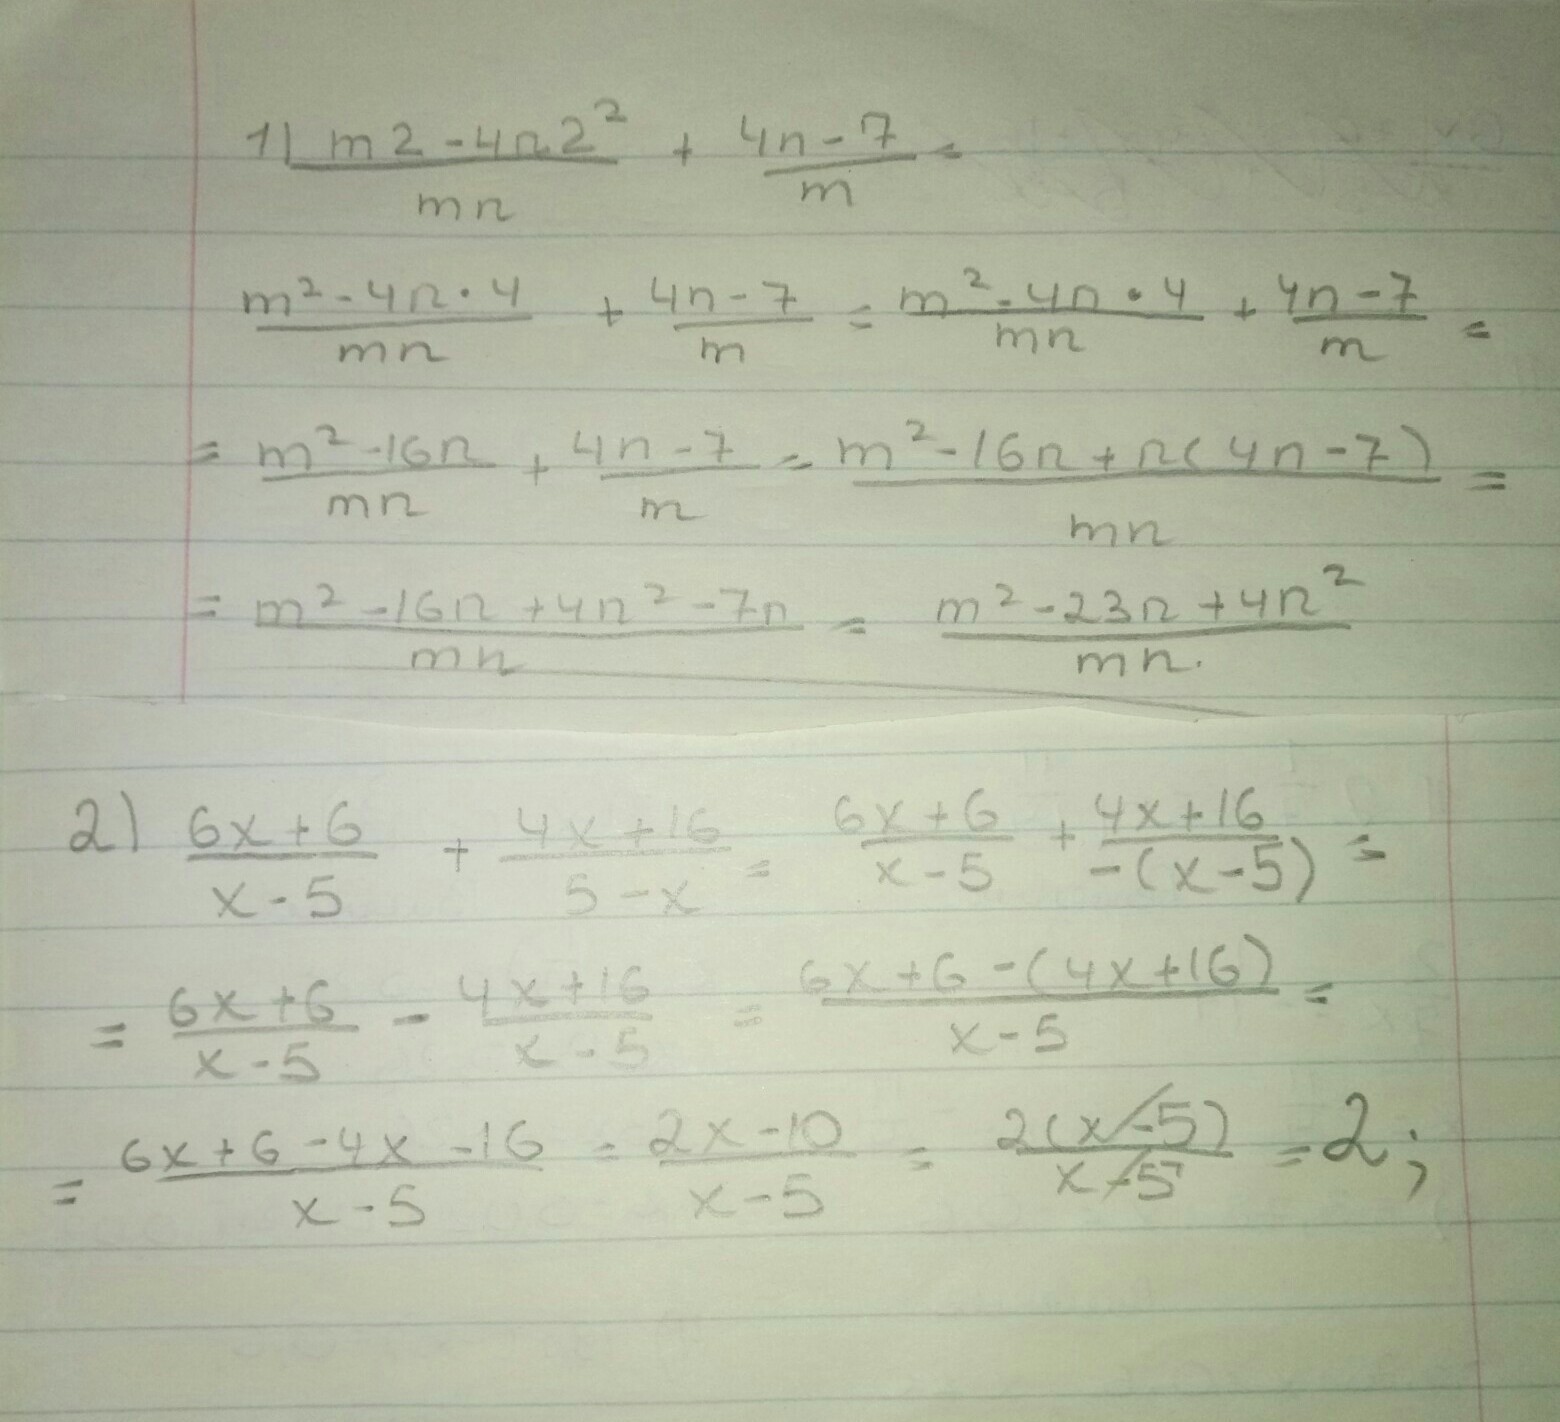 1) (m2-4n2²)/(mn) + (4n-7)/m =
(m²-4n·4)/(mn) + (4n-7)/m = (m²-4n·4)/(mn) + (4n-7)/m =
= (m²-16n)/(mn) + (4n-7)/m = (m²-16n+n(4n-7))/(mn) =
= (m²-16n+4n²-7n)/(mn) = (m²-23n+4n²)/(mn).
2) (6x+6)/(x-5) + (4x+16)/(5-x) = (6x+6)/(x-5) + (4x+16)/(-(x-5)) =
= (6x+6)/(x-5) - (4x+16)/(x-5) = (6x+6-(4x+16))/(x-5) =
= (6x+6-4x-16)/(x-5) = (2x-10)/(x-5) = (2(x-5))/(x-5) = 2;